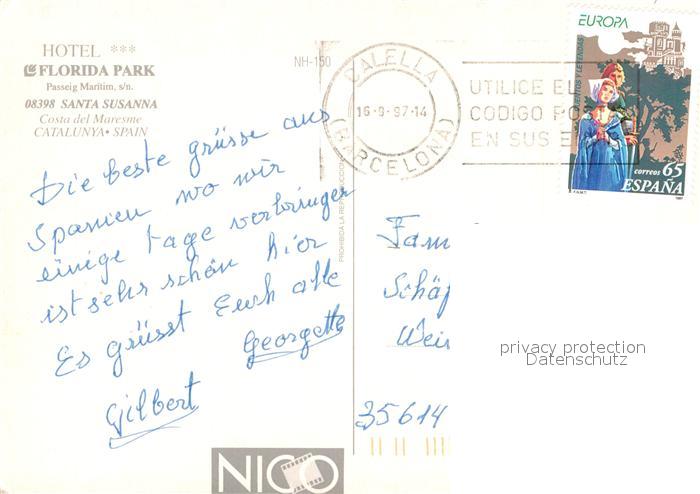 HOTEL ***
FLORIDA PARK
Passeig Marítim, s/n.
08398 SANTA SUSANNA
Costa del Maresme
CATALUNYA • SPAIN
NH-150
CALELLA
16-9-97-14
(BARCELONA)
UTILICE EL
CODIGO POS
EN SUS E
EUROPA
CUENTOS Y LEYENDAS
correos 65
ESPAÑA
1997
Die beste grüsse aus
Spanien wo wir
einige tage verbringen
ist sehr schön hier
Es grüsst Euch alle
Georgette
Gilbert
PROHIBIDA LA REPRODUCCION
Fam
Schäf
Wei
35614
privacy protection
Datenschutz
NICO